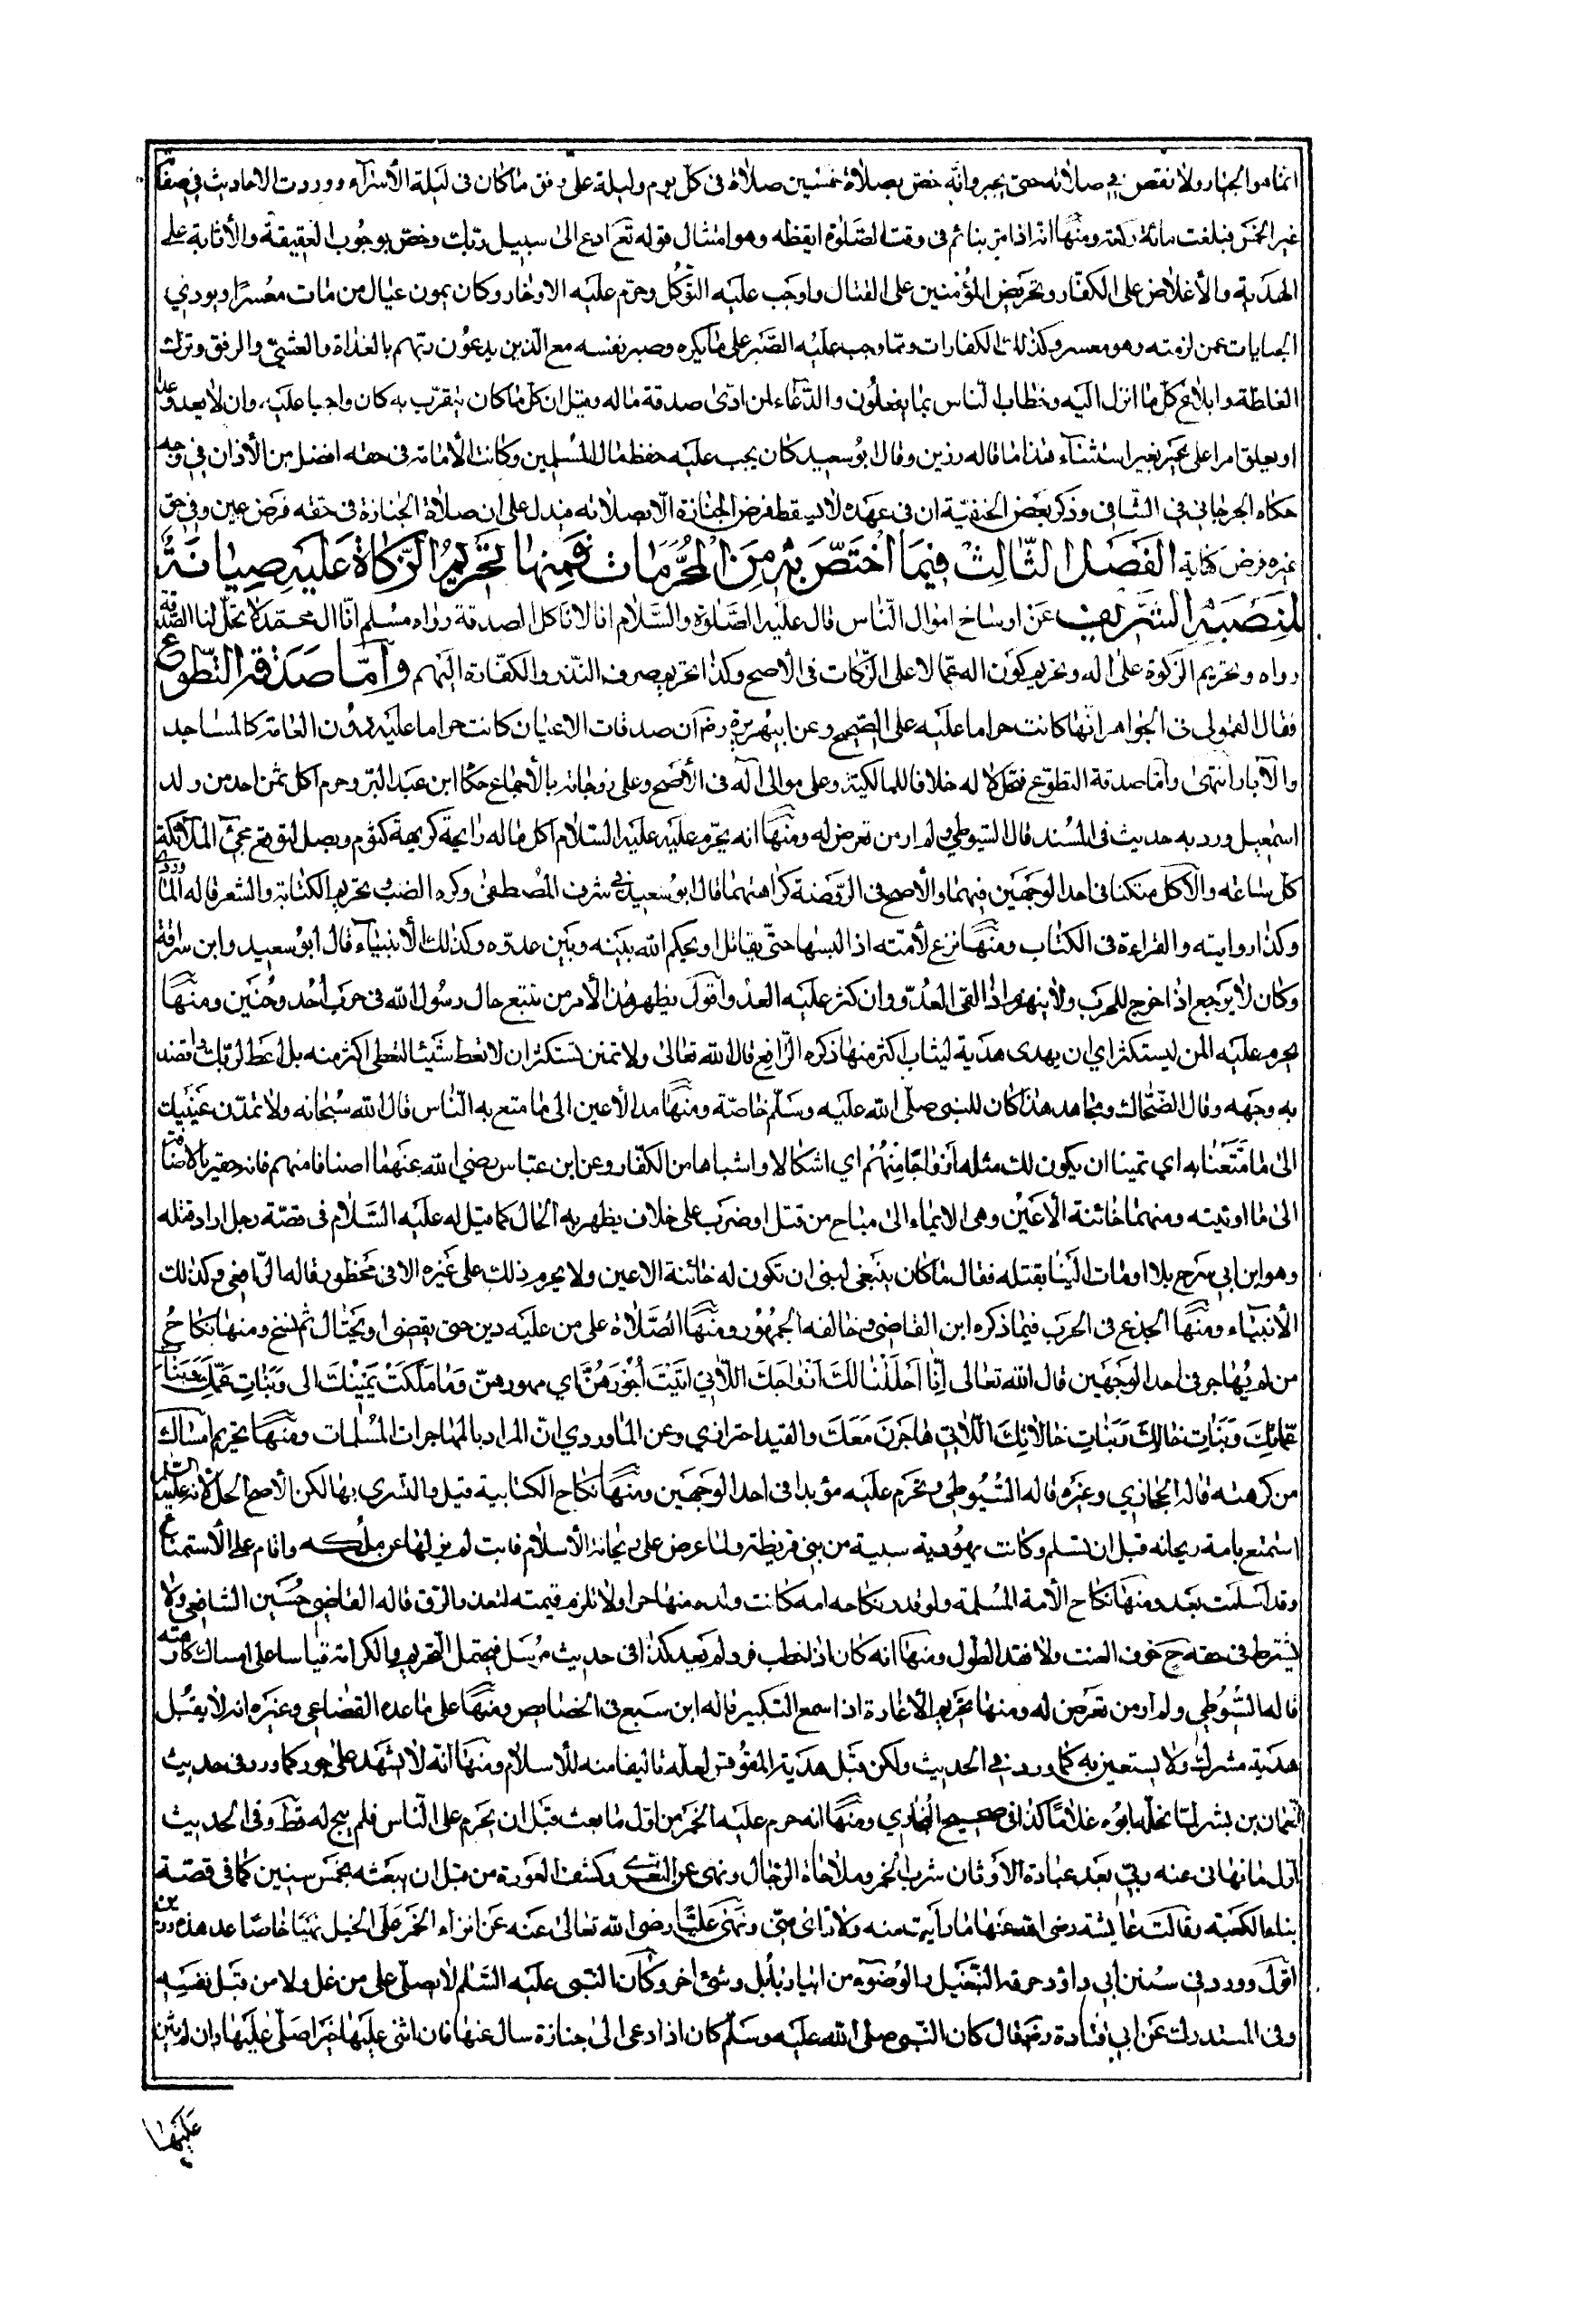 انما هو الجبار ولا نقص في صلاته حتى يجبر وانه خص بصلاة خمسين صلاة فى كل يوم وليلة على وفق ما كان فى ليلة الأسرآء ووردت الاحاديث في صفة
غير الخمس فبلغت مائة ركعة ومنها انه اذا مر بنائم فى وقت الصلوة ايقظه وهو امتثال قوله تع ادع الى سبيل ربك وخص بوجوب العقيقة والأثابة على
الهدية والأغلاض على الكفار وتحريض المؤمنين على القتال واوجب عليه التوكل وحرم عليه الادخار وكان يمون عيال من مات معسرا ويودي
الجنايات عمن لزمته وهو معسر وكذلك الكفارات ومما وجب عليه الصبر على ما يكره وصبر نفسه مع الذين يدعون ربهم بالغداة والعشي والرفق وترك
الغلظة وابلاغ كل ما انزل اليه وخطاب الناس بما يعقلون والدعاء لمن ادى صدقة ماله وقيل ان كل ما كان يتقرب به كان واجبا عليه وان لا يعد وعدا
او يعلق امرا على غير بغير استثناء هذا ما قاله رزين وقال ابو سعيد كان يجب عليه حفظ مال المسلمين وكانت الأمامة فى حقه افضل من الأذان في وجه
حكاه الجرجاني في الشافى وذكر بعض الحنفية ان فى عهده لا يسقط فرض الجنازة الا بصلاته فيدل على ان صلاة الجنازة فى حقه فرض عين وفي حق
غيره فرض كفاية الفصل الثالث فيما اختص به من المحرمات فمنها تحريم الزكاة عليه صيانة
لمنصبه الشريف عن اوساخ اموال الناس قال عليه الصلوة والسلام انا لا ناكل الصدقة رواه مسلم انا ال محمد لا تحل لنا الصدقة
رواه وتحريم الزكوة على اله وتحريم كون اله عمالا على الزكات فى الاصح وكذا تحريم صرف النذر والكفارة اليهم واما صدقة التطوع
فقال القمولى فى الجواهر انها كانت حراما عليه على الصحيح وعن ابيهريرة رضم ان صدقات الاعيان كانت حراما عليه دون العامة كالمساجد
والآبار انتهى واما صدقة التطوع فتحل لاله خلافا للمالكية وعلى موالى آله فى الأصح وعلى زوجاته بالأجماع حكا ابن عبد البر وحرم اكل ثمن احد من ولد
اسمعيل ورد به حديث فى المسند قال السيوطي ولم ار من تعرض له ومنها انه يحرم عليه عليه السلام اكل ما له رايحة كريهة كثوم وبصل لتوقع مجئ الملائكة
كل ساعة والأكل متكئا فى احد الوجهين فيهما والأصح فى الروضة كراهتهما قال ابو سعيد في شرف المصطفى وكره الضب وتحريم الكتابة والشعر قاله الماوردي
وكذا روايته والقراءة فى الكتاب ومنها نزع لأمته اذا لبسها حتى يقاتل او يحكم الله بينه وبين عدوه وكذلك الأنبياء قال ابو سعيد وابن سراقة
وكان لا يرجع اذا خرج للحرب ولا ينهزم اذا لقى العدو وان كثر عليه العدو اقول يظهر هذا الأمر من تتبع حال رسول الله فى حرب أحد وحنين ومنها
يحرم عليه المن ليستكثر اي ان يهدى هدية ليثاب اكثر منها ذكره الرافع قال الله تعالى ولا تمنن تستكثر ان لا تعط شيئا لتعطى اكثر منه بل اعط لربك واقصد
به وجهه وقال الضحاك ومجاهد هذا كان للنبى صلى الله عليه وسلم خاصة ومنها مد الأعين الى ما متع به الناس قال الله سبحانه ولا تمدن عينيك
الى ما متعنا به اي تمنيا ان يكون لك مثله ازواجا منهم اي اشكالا واشباها من الكفار وعن ابن عباس رضي الله عنهما اصنافا منهم فانه حقير بالاضافة
الى ما اوتيته ومنهما خائنة الأعين وهى الايماء الى مباح من قتل او ضرب على خلاف يظهر به الحال كما قيل له عليه السلام فى قصة رجل اراد قتله
وهو ابن ابي سرح بلا اومات الينا بقتله فقال ما كان ينبغى لبنى ان تكون له خائنة الاعين ولا يحرم ذلك على غيره الا فى محظور قاله الراضى وكذلك
الأنبياء ومنها الخدع فى الحرب فيما ذكره ابن القاضى وخالفه الجمهور ومنها الصلاة على من عليه دين حتى يقضى او يحتال ثم نسخ ومنها نكاح
من لم يهاجر فى احد الوجهين قال الله تعالى إنا احللنا لك ازواجك اللاتي اتيت أجورهن اي مهورهن وما ملكت يمينك الى وبنات عمك وبنات
عماتك وبنات خالك وبنات خالاتك اللاتي هاجرن معك والقيد احترازي وعن الماوردي ان المراد بالمهاجرات المسلمات ومنها تحريم امساك
من كرهته قاله الحجازي وغيره قاله السيوطي وتحرم عليه مؤبدا فى احد الوجهين ومنها نكاح الكتابية قيل والتسرى بها لكن الأصح الحل لانه عليه السلم
استمتع بامة ريحانه قبل ان تسلم وكانت يهودية سبية من بنى قريظة ولما عرض على ريحانة الأسلام فابت لم يزلها عن ملكه واقام على الاستمتاع
وقد اسلمت بعد ومنها نكاح الأمة المسلمة ولو قدر نكاحه امه كانت ولده منها حرا ولا تلزمه قيمته لتعذر الرق قاله القاضى حسين الشافعى ولا
يشترط فى حقه ح خوف العنت ولا فقد الطول ومنها انه كان اذا خطب فرد لم يعد كذا فى حديث مرسل فيحتمل التحريم والكراهة قياسا على امساك كارهته
قاله السيوطي ولم ار من تعرض له ومنها تحريم الأغارة اذا سمع التكبير قاله ابن سبع فى الخصايص ومنها على ما عده القضاعي وغيره انه لا يقبل
هدية مشرك ولا يستعين به كما ورد في الحديث ولكن قبل هدية المقوقس لعله تاليفا منه للأسلام ومنها انه لا يشهد على جور كما ورد فى حديث
النعمان بن بشر لما نحله ابوه غلاما كذا فى صحيح البخاري ومنها انه حرم عليه الخمر من اول ما بعث قبل ان يحرم على الناس فلم يبح له قط وفى الحديث
اول ما نهانى عنه ربي بعد عبادة الأوثان شرب الخمر وملاحاة الرجال ونهى عن التعري وكشف العورة من قبل ان يبعثه بخمس سنين كما فى قصة
بناء الكعبة وقالت عايشة رضى الله عنها ما رايت منه ولا راى منى ونهى عليا رضى الله تعالى عنه عن انزاء الحمر على الخيل نهيا خاصا عد هذه رزين
اقول وورد فى سنن ابي داؤد حرمة التنخيل والوضوء من انهار بابل وشئ اخر وكان النبى عليه السلم لا يصلى على من غل ولا من قتل نفسه
وفى المستدرك عن ابي قتادة رضم قال كان النبى صلى الله عليه وسلم كان اذا دعى الى جنازة سال عنها فان اثنى عليها خيرا صلى عليها وان لم يثن
عليها